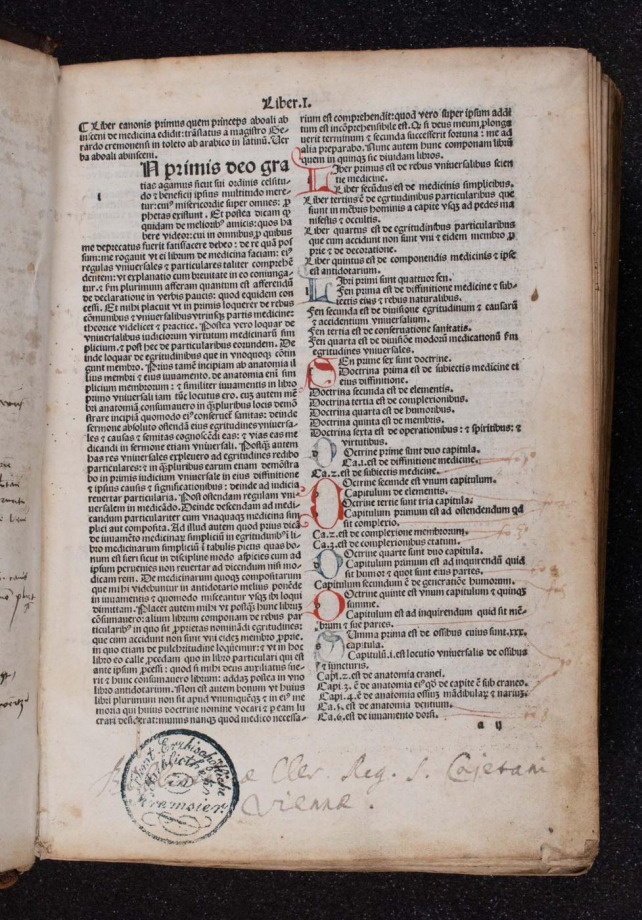 Liber.I.
¶ Liber canonis primus quem princeps aboali ab
insceni de medicina edidit: trāslatus a magistro Ge-
rardo cremonensi in toleto ab arabico in latinū. Ver
ba aboali abinsceni.
IN primis deo gra
tias agamus sicut sui ordinis celsitu-
do ⁊ beneficij ipsius multitudo mere-
tur: cuiꝰ misericordie super omnes: ꝓ
phetas existunt. Et postea dicam ꝙ
quidam de meliorib' amicis: quos ha
bere videor: cui in omnibus ꝓ quibus
me deprecatus fuerit satisfacere debeo: de re quā pos
sum: me rogauit vt ei librum de medicina faciam: ei'
regulas vniuersales ⁊ particulares taliter comprehē
dentem: vt explanatio cum breuitate in eo coniunga-
tur. ⁊ ꝙ plurimum afferam quantum est afferendū
de declaratione in verbis paucis: quod equidem con
cessi. Et mihi placuit vt in primis loquerer de rebus
cōmunibus ⁊ vniuersalibus vtriusqꝫ partis medicine:
theorice videlicet ⁊ practice. Postea vero loquar de
vniuersalibus iudiciorum virtutum medicinarū sim
plicium. ⁊ post hec de particularibus eorundem. De
inde loquar de egritudinibus que in vnoquoqꝫ cōtin
gunt membro. Prius tamē incipiam ab anatomia il
lius membri ⁊ eius iuuamento. de anatomia em̄ sim
plicium membrorum: ⁊ similiter iuuamentis in libro
primo vniuersali iam tūc locutus ero. cuꝫ autem mem
bri anatomiā consumauero in qꝫpluribus locis demō
strare incipiā quomodo ei' conseruet̄ sanitas: deinde
sermone absoluto ostendā eius egritudines vniuersa-
les ⁊ causas ⁊ semitas cognoscēdi eas: ⁊ vias eas me
dicandi in sermone etiam vniuersali. Postqꝫ autem
has res vniuersales explenero ad egritudines redibo
particulares: ⁊ in qꝫpluribus earum etiam demōstra
bo in primis iudicium vniuersale in eius diffinitione
⁊ ipsius causis ⁊ significationibus: deinde ad iudicia
reuertar particularia. Post ostendam regulam vni-
uersalem in medicādo. Deinde descendam ad medi
candum particulariter cum vnaquaqꝫ medicina sim
plici aut composita. Ad illud autem quod prius dictū
de iuuamēto medicinaꝝ simplicium in egritudinib' i li-
bro medicinarum simpliciū ⁊ tabulis pictis quas bo-
num est fieri sicut in discipline modo aspicies cum ad
ipsum perueries non reuertar ad dicendum nisi mo-
dicam rem. De medicinarum quoqꝫ compositarum
que mihi videbuntur in antidotario melius ponēde
in iuuamentis ⁊ quomodo misceantur vsqꝫ ibi loqui
dimittam. Placet autem mihi vt postqꝫ hunc librum
cōsumauero: alium librum componam de rebus par
ticularib' in quo sit ꝓprietas nominādi egritudines:
que cum accidunt non sunt vni eidēꝫ membro ꝓprie.
in quo etiam de pulchritudine loquēmur: ⁊ vt in hoc
libro eo calle ꝓcedam quo in libro particulari qui est
ante ipsum ꝓcessi: quod si mihi deus auxiliatus fue-
rit ⁊ hunc consumauero librum: addaꝫ postea in vno
libro antidotarium. Non est autem bonum vt huius
libri plurimum non sit apud vnumquēqꝫ ⁊ in ei' me
moria qui huius doctrine nomine vocari ⁊ ꝑ eam lu
crari desiderat: minus nanqꝫ quod medico necessa-
rium est comprehendit: quod vero super ipsum addit
tum est incōprehensibile est. Qꝫ si deus meum ꝓlonga
uerit terminum ⁊ secunda successerit fortuna: me ad
alia preparabo. Nunc autem hunc componam librū
quem in quinqꝫ sic diuidam libros.
LIber primus est de rebus vniuersalibus scien
tie medicine.
Liber secūdus est de medicinis simplicibus.
Liber tertius ē de egritudinibus particularibus que
fiunt in mēbris hominis a capite vsqꝫ ad pedes ma
nifestis ⁊ occultis.
Liber quartus est de egritudinibus particularibus
que cum accidunt non sunt vni ⁊ eidem membro ꝓ
prie ⁊ de decoratione.
Liber quintus est de componendis medicinis ⁊ ipse
est antidotarium.
LIbri primi sunt quattuor fen.
Fen prima est de diffinitione medicine ⁊ sub-
iectis eius ⁊ rebus naturalibus.
Fen secunda est de diuisione egritudinum ⁊ causarū
⁊ accidentium vniuersalium.
Fen tertia est de conseruatione sanitatis.
Fen quarta est de diuisiōe modorū medicationū ẜm
egritudines vniuersales.
FEn prime sex sunt doctrine.
Doctrina prima est de subiectis medicine et
eius diffinitione.
Doctrina secunda est de elementis.
Doctrina tertia est de complexionibus.
Doctrina quarta est de humoribus.
Doctrina quinta est de membris.
Doctrina sexta est de operationibus: ⁊ spiritibus: ⁊
virtutibus.
DOctrine prime sunt duo capitula.
Ca.1. est de diffinitione medicine.
Ca.2. est de subiectis medicine.
DOctrine secunde est vnum capitulum.
Capitulum de elementis.
Doctrine tertie sunt tria capitula.
Capitulum primum est ad ostendendum qd
sit complexio.
Ca.2. est de complexione membrorum.
Ca.3. est de complexionibus etatum.
DOctrine quarte sunt duo capitula.
Capitulum primum est ad inquirendū quid
sit humor ⁊ quot sunt eius partes.
Capitulum secundum ē de generatiōe humorum.
DOctrine quinte est vnum capitulum ⁊ quinqꝫ
summe.
Capitulum est ad inquirendum quid sit mē-
brum ⁊ sue partes.
SUmma prima est de ossibus cuius sunt.xxx.
capitula.
Capitulū.1. est locutio vniuersalis de ossibus
⁊ iuncturis.
Capi.2. est de anatomia cranei.
Capi.3. ē de anatomia ei' qd̄ de capite ē sub craneo.
Capi.4. ē de anatomia ossiuꝫ mādibulaꝝ ⁊ nariuꝫ.
Ca.5. est de anatomia dentium.
Ca.6. est de iuuamento dorsi.
a ij
Cler. Reg. S. Cajetani
Viennæ.
Fürst Erzbischöfliche
Bibliothek
in
Kremsier